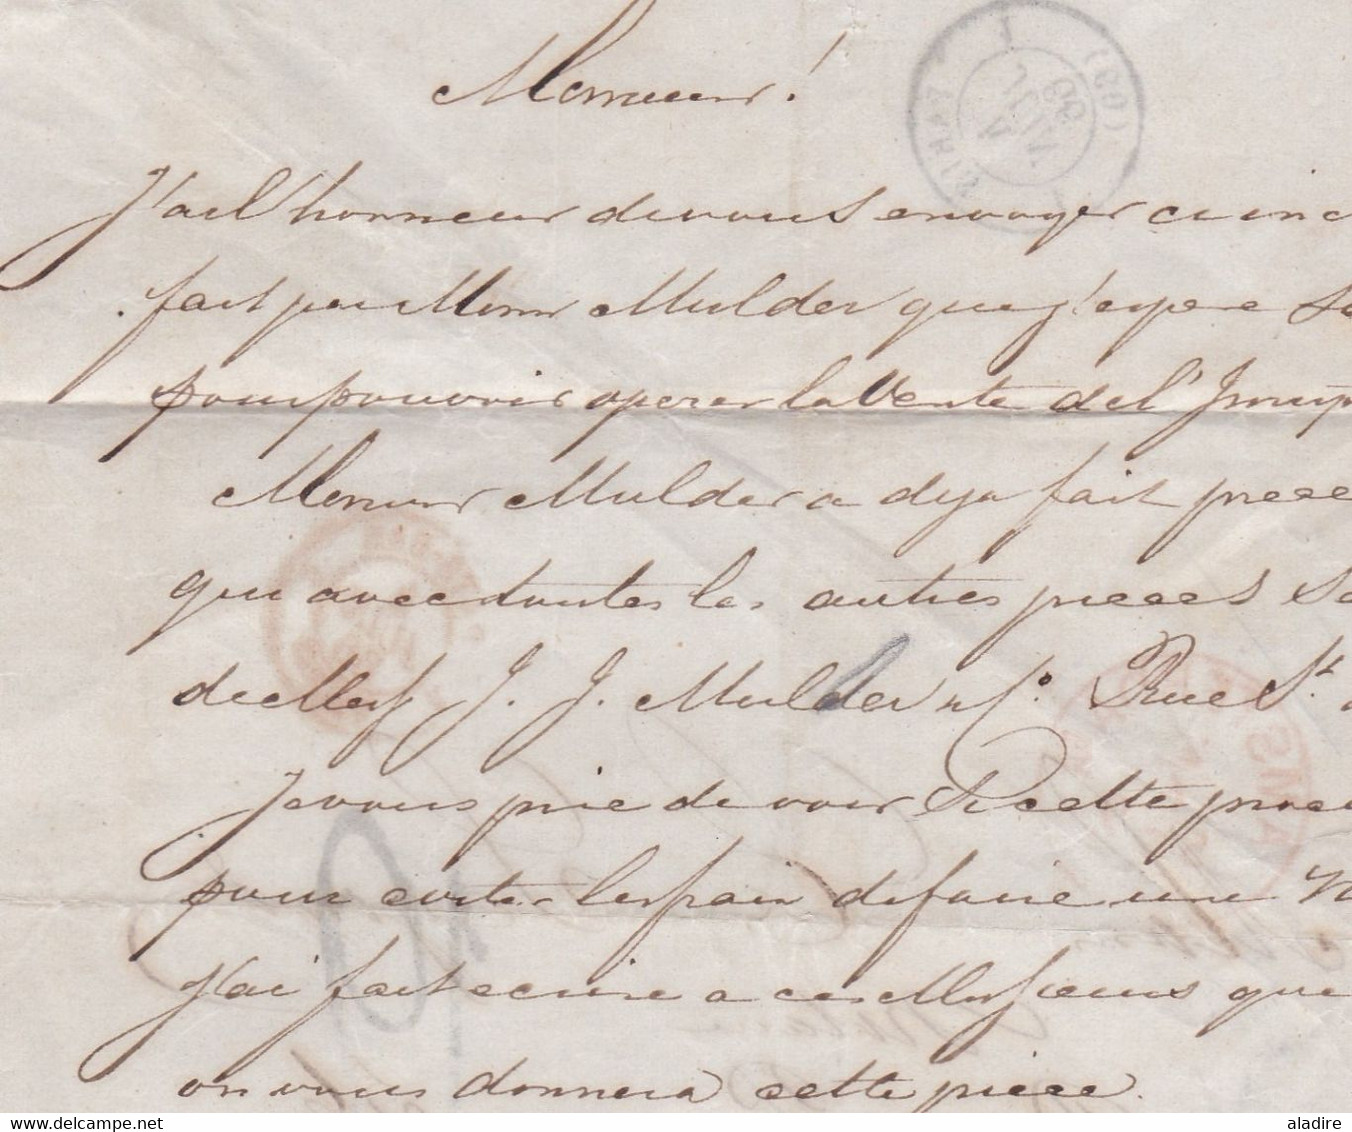 Monsieur!
J'ai l'honneur de vous envoyer ci inc
fait par Monsr Mulder que j'espere
pour pouvoir operer la Vente de l'
Monsieur Mulder a deja fait
que avec toutes les autres pieces
de Mess J. J. Mulder Rue St
Je vous prie de voir Si cette
pour eviter les frais de faire une
J'ai fait ecrire a ces Messieurs que
on vous donnera cette piece.